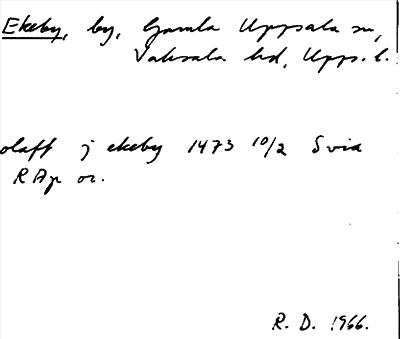 Ekeby, by, Gamla Uppsala sn,
Vaksala hd, Upps. l.
olaff j ekeby 1473 10/2 Svia
RAp or.
R. D. 1966.